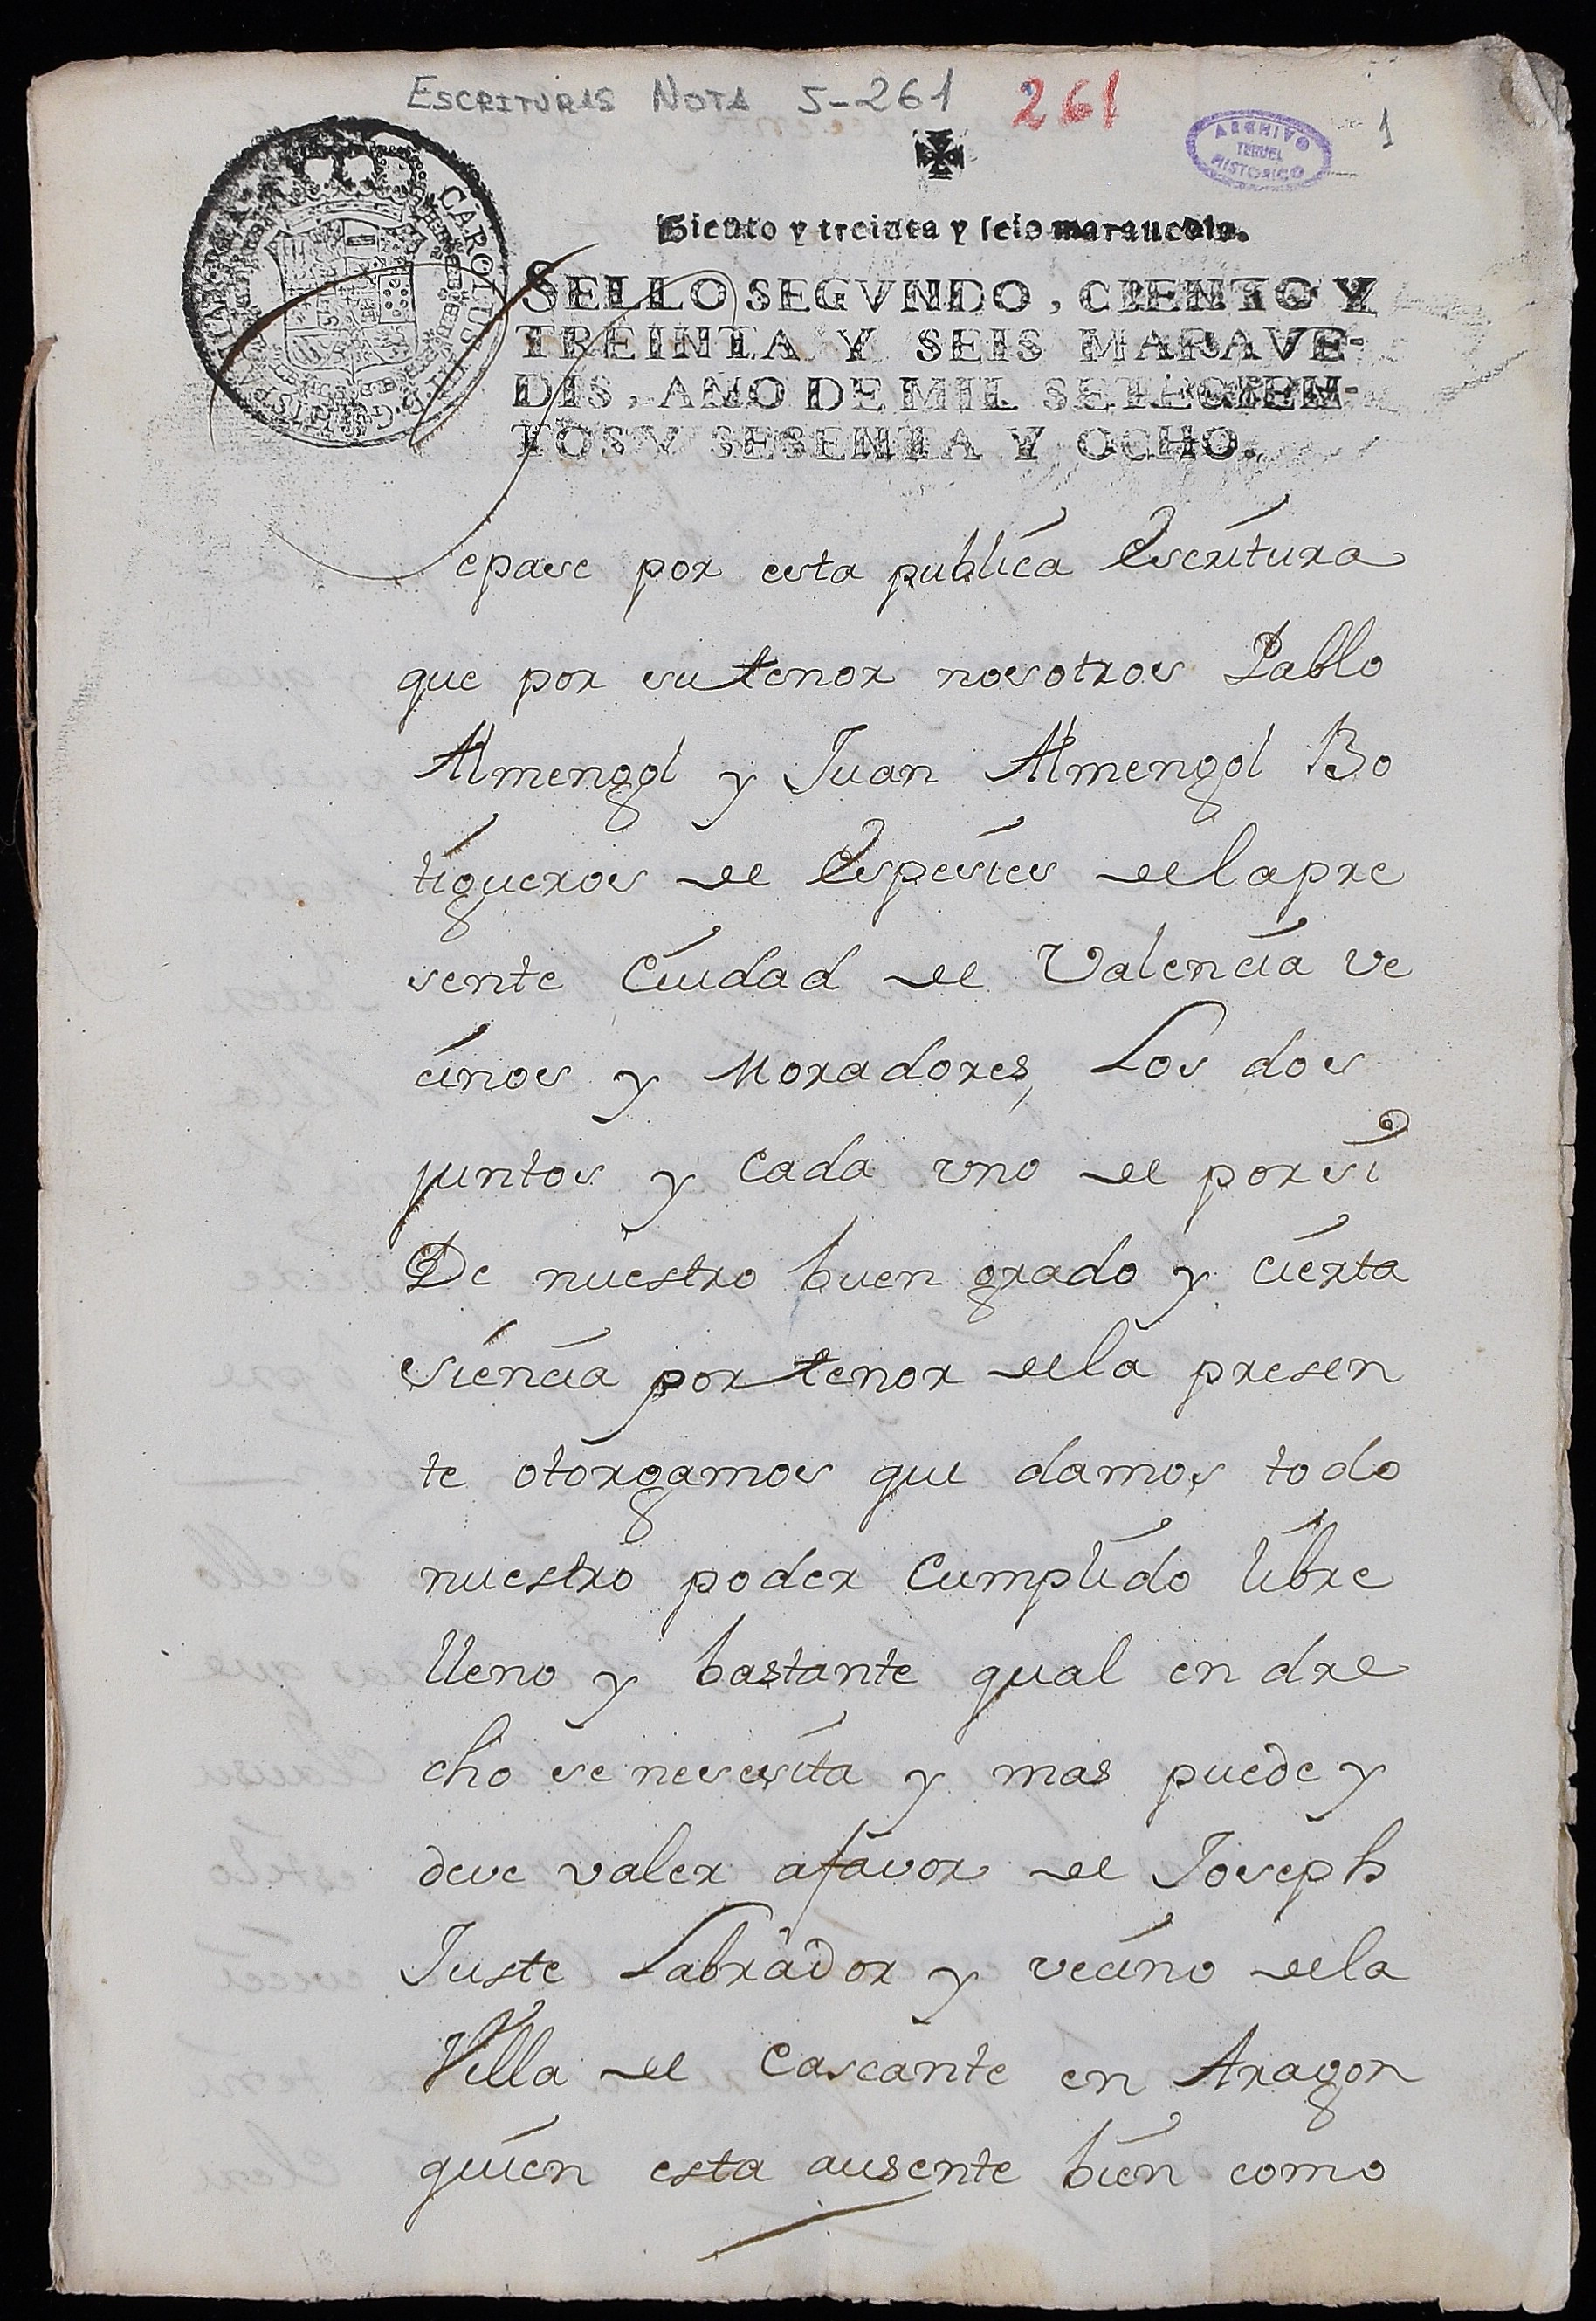 ESCRITURAS NOTA 5-261 261
1
ARCHIVO
TERUEL
HISTORICO
Ciento y treinta y seis marauedis.
CAROLUS III D G
HISPANIAR REX
SELLO SEGVNDO, CIENTO Y
TREINTA Y SEIS MARAVE-
DIS, AÑO DE MIL SETECIEN-
TOS Y SESENTA Y OCHO.
Sepase por esta publica Escritura
que por su tenor nosotros Pablo
Almengol y Juan Almengol Bo
tigueros de Espesies de la pre
sente Ciudad de Valencia ve
cinos y Moradores, Los dos
juntos y cada vno de por si
De nuestro buen grado y cierta
siencia por tenor de la presen
te otorgamos que damos todo
nuestro poder cumplido libre
lleno y bastante qual en dre
cho se nesesita y mas puede y
deve valer a favor de Joseph
Juste Labrador y vecino de la
Villa de Cascante en Aragon
quien esta ausente bien como